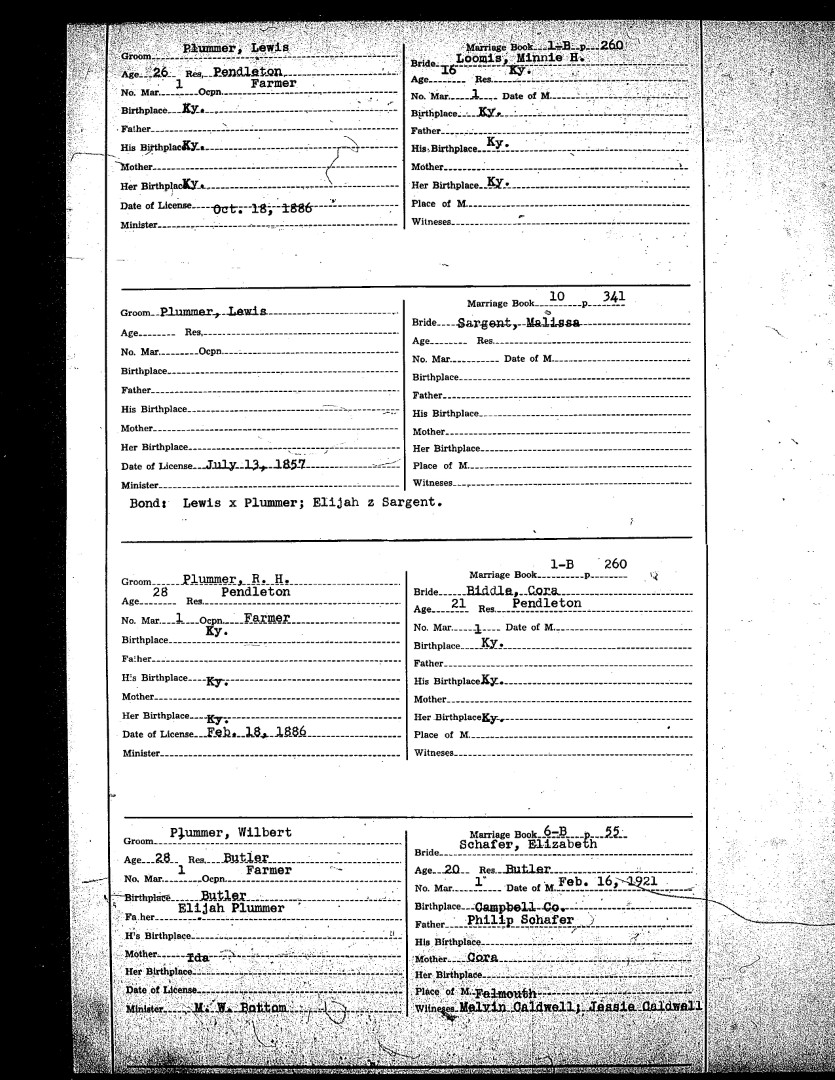 Groom Plummer, Lewis
Age 26 Res. Pendleton
No. Mar. 1 Ocpn. Farmer
Birthplace Ky.
Father
His Birthplace Ky.
Mother
Her Birthplace Ky.
Date of License Oct. 18, 1886
Minister
Marriage Book 1-B p. 260
Bride Loomis, Minnie H.
Age 16 Res. Ky.
No. Mar. 1 Date of M.
Birthplace Ky.
Father
His Birthplace Ky.
Mother
Her Birthplace Ky.
Place of M.
Witnesses
Groom Plummer, Lewis
Age Res.
No. Mar. Ocpn.
Birthplace
Father
His Birthplace
Mother
Her Birthplace
Date of License July 13, 1857
Minister
Marriage Book 10 p. 341
Bride Sargent, Malissa
Age Res.
No. Mar. Date of M.
Birthplace
Father
His Birthplace
Mother
Her Birthplace
Place of M.
Witnesses
Bond: Lewis x Plummer; Elijah z Sargent.
Groom Plummer, R. H.
Age 28 Res. Pendleton
No. Mar. 1 Ocpn. Farmer
Birthplace Ky.
Father
His Birthplace Ky.
Mother
Her Birthplace Ky.
Date of License Feb. 18, 1886
Minister
Marriage Book 1-B p. 260
Bride Biddle, Cora
Age 21 Res. Pendleton
No. Mar. 1 Date of M.
Birthplace Ky.
Father
His Birthplace Ky.
Mother
Her Birthplace Ky.
Place of M.
Witnesses
Groom Plummer, Wilbert
Age 28 Res. Butler
No. Mar. 1 Ocpn. Farmer
Birthplace Butler
Father Elijah Plummer
His Birthplace
Mother Ida
Her Birthplace
Date of License
Minister M. W. Bottom
Marriage Book 6-B p. 55
Bride Schafer, Elizabeth
Age 20 Res. Butler
No. Mar. 1 Date of M. Feb. 16, 1921
Birthplace Campbell Co.
Father Philip Schafer
His Birthplace
Mother Cora
Her Birthplace
Place of M. Falmouth
Witneses Melvin Caldwell; Jessie Caldwell